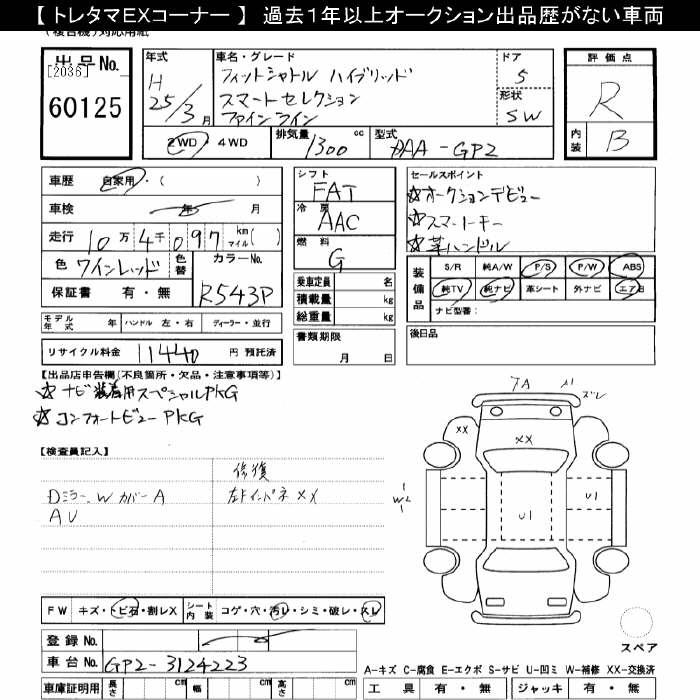 【 トレタマEXコーナー 】 過去１年以上オークション出品歴がない車両
(複合機)対応用紙
出品No.
[2036]
60125
年式
H 25/3月
車名・グレード
フィットシャトル ハイブリッド
スマートセレクション
ファインライン
ドア
5
形状
SW
評価点
R
内装
B
2WD・4WD
排気量
1300 cc
型式
DAA-GP2
車歴 自家用・( )
車検 年 月
走行 10万4千097 km マイル( )
色 ワインレッド 色替
カラーNo.
R543P
保証書 有・無
シフト
FAT
冷房
AAC
燃料
G
乗車定員 名
積載量 kg
総重量 kg
書類期限
月 日
セールスポイント
☆オークションデビュー
☆スマートキー
☆革ハンドル
装備品
S/R 純A/W P/S P/W ABS
純TV 純ナビ 革シート 外ナビ エアB
ナビ型番:
後日品
モデル年式 年 ハンドル 左・右 ディーラー・並行
リサイクル料金 11440 円 預託済
【出品店申告欄(不良箇所・欠品・注意事項等)】
☆ナビ装着用スペシャルPKG
☆コンフォートビューPKG
【検査員記入】
修復
Dミラー、WカバーA
左フインパネXX
AU
FW キズ・トビ石・割レX
シート内装 コゲ・穴・汚レ・シミ・破レ・スレ
登録No.
車台No. GP2-3124223
車庫証明用 長さ cm 幅 cm 高さ cm
ズレ
XX
XX
W2
U1
U1
スペア
A-キズ C-腐食 E-エクボ S-サビ U-凹ミ W-補修 XX-交換済
工具 有・無 ジャッキ 有・無